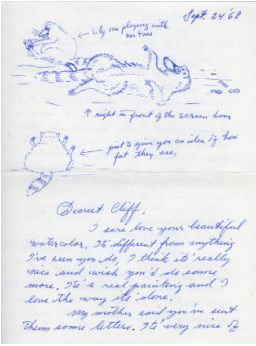 Sept. 24 '68
silly one playing with
her toes
↑ right in front of the screen door
just to give you an idea of how
fat they are.
Dearest Cliff,
I sure love your beautiful
watercolor. It's different from anything
I've seen you do, I think it's really
nice and wish you'd do some
more. It's a real painting and I
love the way it's done.
My mother said you've sent
them some letters. It's very nice of